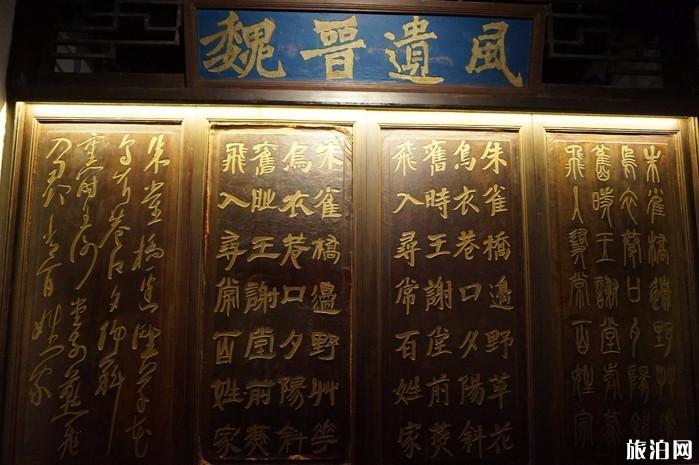 魏晉遺風
朱雀橋邊野艸華
烏衣巷口夕陽斜
舊時王謝堂前燕
飛入尋常百姓家
朱雀橋邊野草花
烏衣巷口夕陽斜
舊時王謝堂前燕
飛入尋常百姓家
朱雀橋邊野艸華
烏衣巷口夕陽斜
舊時王謝堂前燕
飛入尋常百姓家
朱雀橋邊野草花
烏衣巷口夕陽斜
舊時王謝堂前燕飛
入尋常百姓家
旅泊网